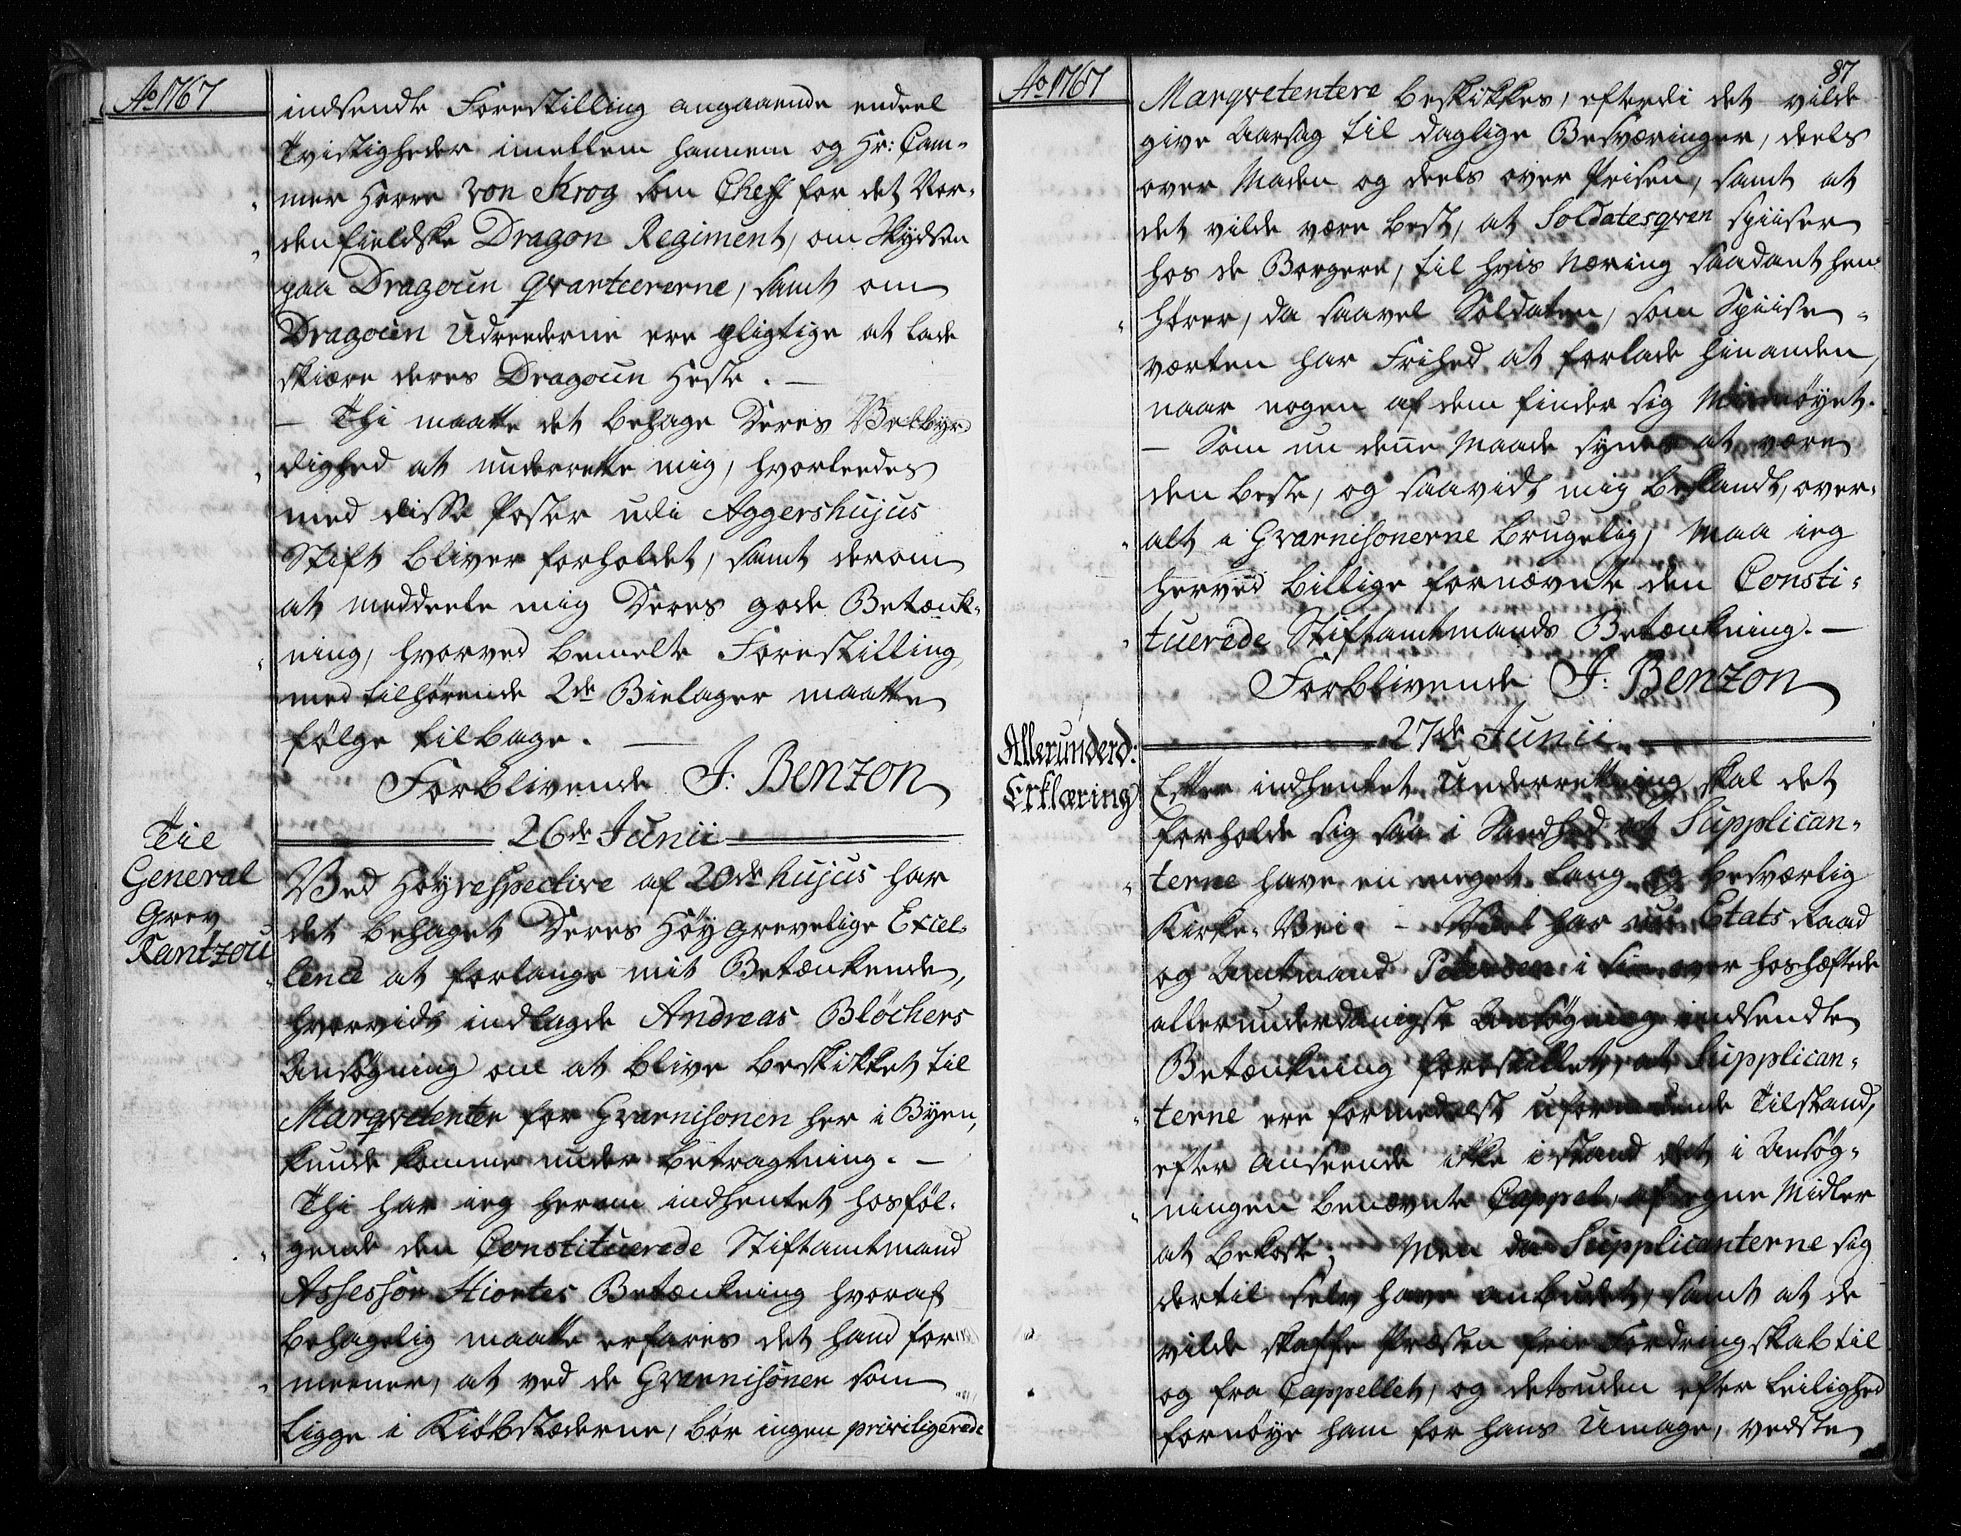 Ao 1767.
indsendte Forestilling angaaende endeel
Tvistigheder imellem hannem og Hr: Cam-
mer Herre von Krog som Cheff for det Nor-
denfieldske Dragon Regiment, om Skydsen
paa Dragoun Qvarteererne, samt om
Dragoun Udreederne ere pligtige at lade
skiære deres Dragoun Heste. —
— Thi maatte det behage Deres Velbyr-
dighed at underrette mig, hvorleedes
med disse Poster udi Aggershujus
Stift bliver forholdet, samt derom
at meddeele mig Deres gode Betænk-
ning, hvorved bemelte Forestilling
med tilhørende 2de Bielager maatte
følge tilbage. —
Forblivende J. Benzon
Til
General
Grev
Rantzou
26de Junii
Ved Høyrespective af 20de hujus har
det behaget Deres Høygrevelige Excel-
lence at forlange mit Betænkende,
hvorvidt indlagde Andreas Bløchers
Ansøgning om at blive beskikket til
Marqvetenter for Gvarnisonen her i Byen,
kunde komme under Betragtning. —
Thi har ieg herom indhentet hosføl-
gende den Constituerede Stiftamtmand
Assessor Hiortes Betænkning hvoraf
behagelig maatte erfares det hand for-
meener, at ved de Gvarnisoner som
ligge i Kiøbstæderne, bør ingen priviligerede
Ao 1767
87
Marqvetentere beskikkes, efterdi det vilde
give Aarsag til daglige Besværinger, deels
over Maden og deels over Prisen, samt at
det vilde være best, at Soldatesqven spiiser
hos de Borgere, til hvis Næring saadant hen-
hører, da saavel Soldaten, som Spiise-
værten har Frihed at forlade hinanden,
naar nogen af dem finder sig Misnøyet.
— Som nu denne Maade synes at være
den beste, og saavidt mig bekandt, over-
alt i Gvarnisonerne brugelig, maa ieg
herved billige fornævnte den Consti-
tuerede Stiftamtmands Betænkning. —
Forblivende J. Benzon
27de Junii
Allerunderd:
Erklæring
Efter indhentet Underrettning skal det
forholde sig saa i Sandhed at Supplican-
terne have en meget lang og besværlig
Kirke-Vei. — Vel har nu Etats Raad
og Amtmand Petersen i sin over hoshæftede
allerunderdanigst Ansøgning indsendte
Betænkning forestillet, at Supplican-
terne ere formedelst uformuende Tilstand,
efter Anseende ikke i stand det i Ansøg-
ningen benævnte Cappel, af egne Midler
at bekoste; Men da Supplicanterne sig
dertil selv have anbudet, samt at de
vilde skaffe Præsten frie Fordringskab til
og fra Cappellet, og desuden efter Leilighed
fornøye ham for hans Umage, vedste